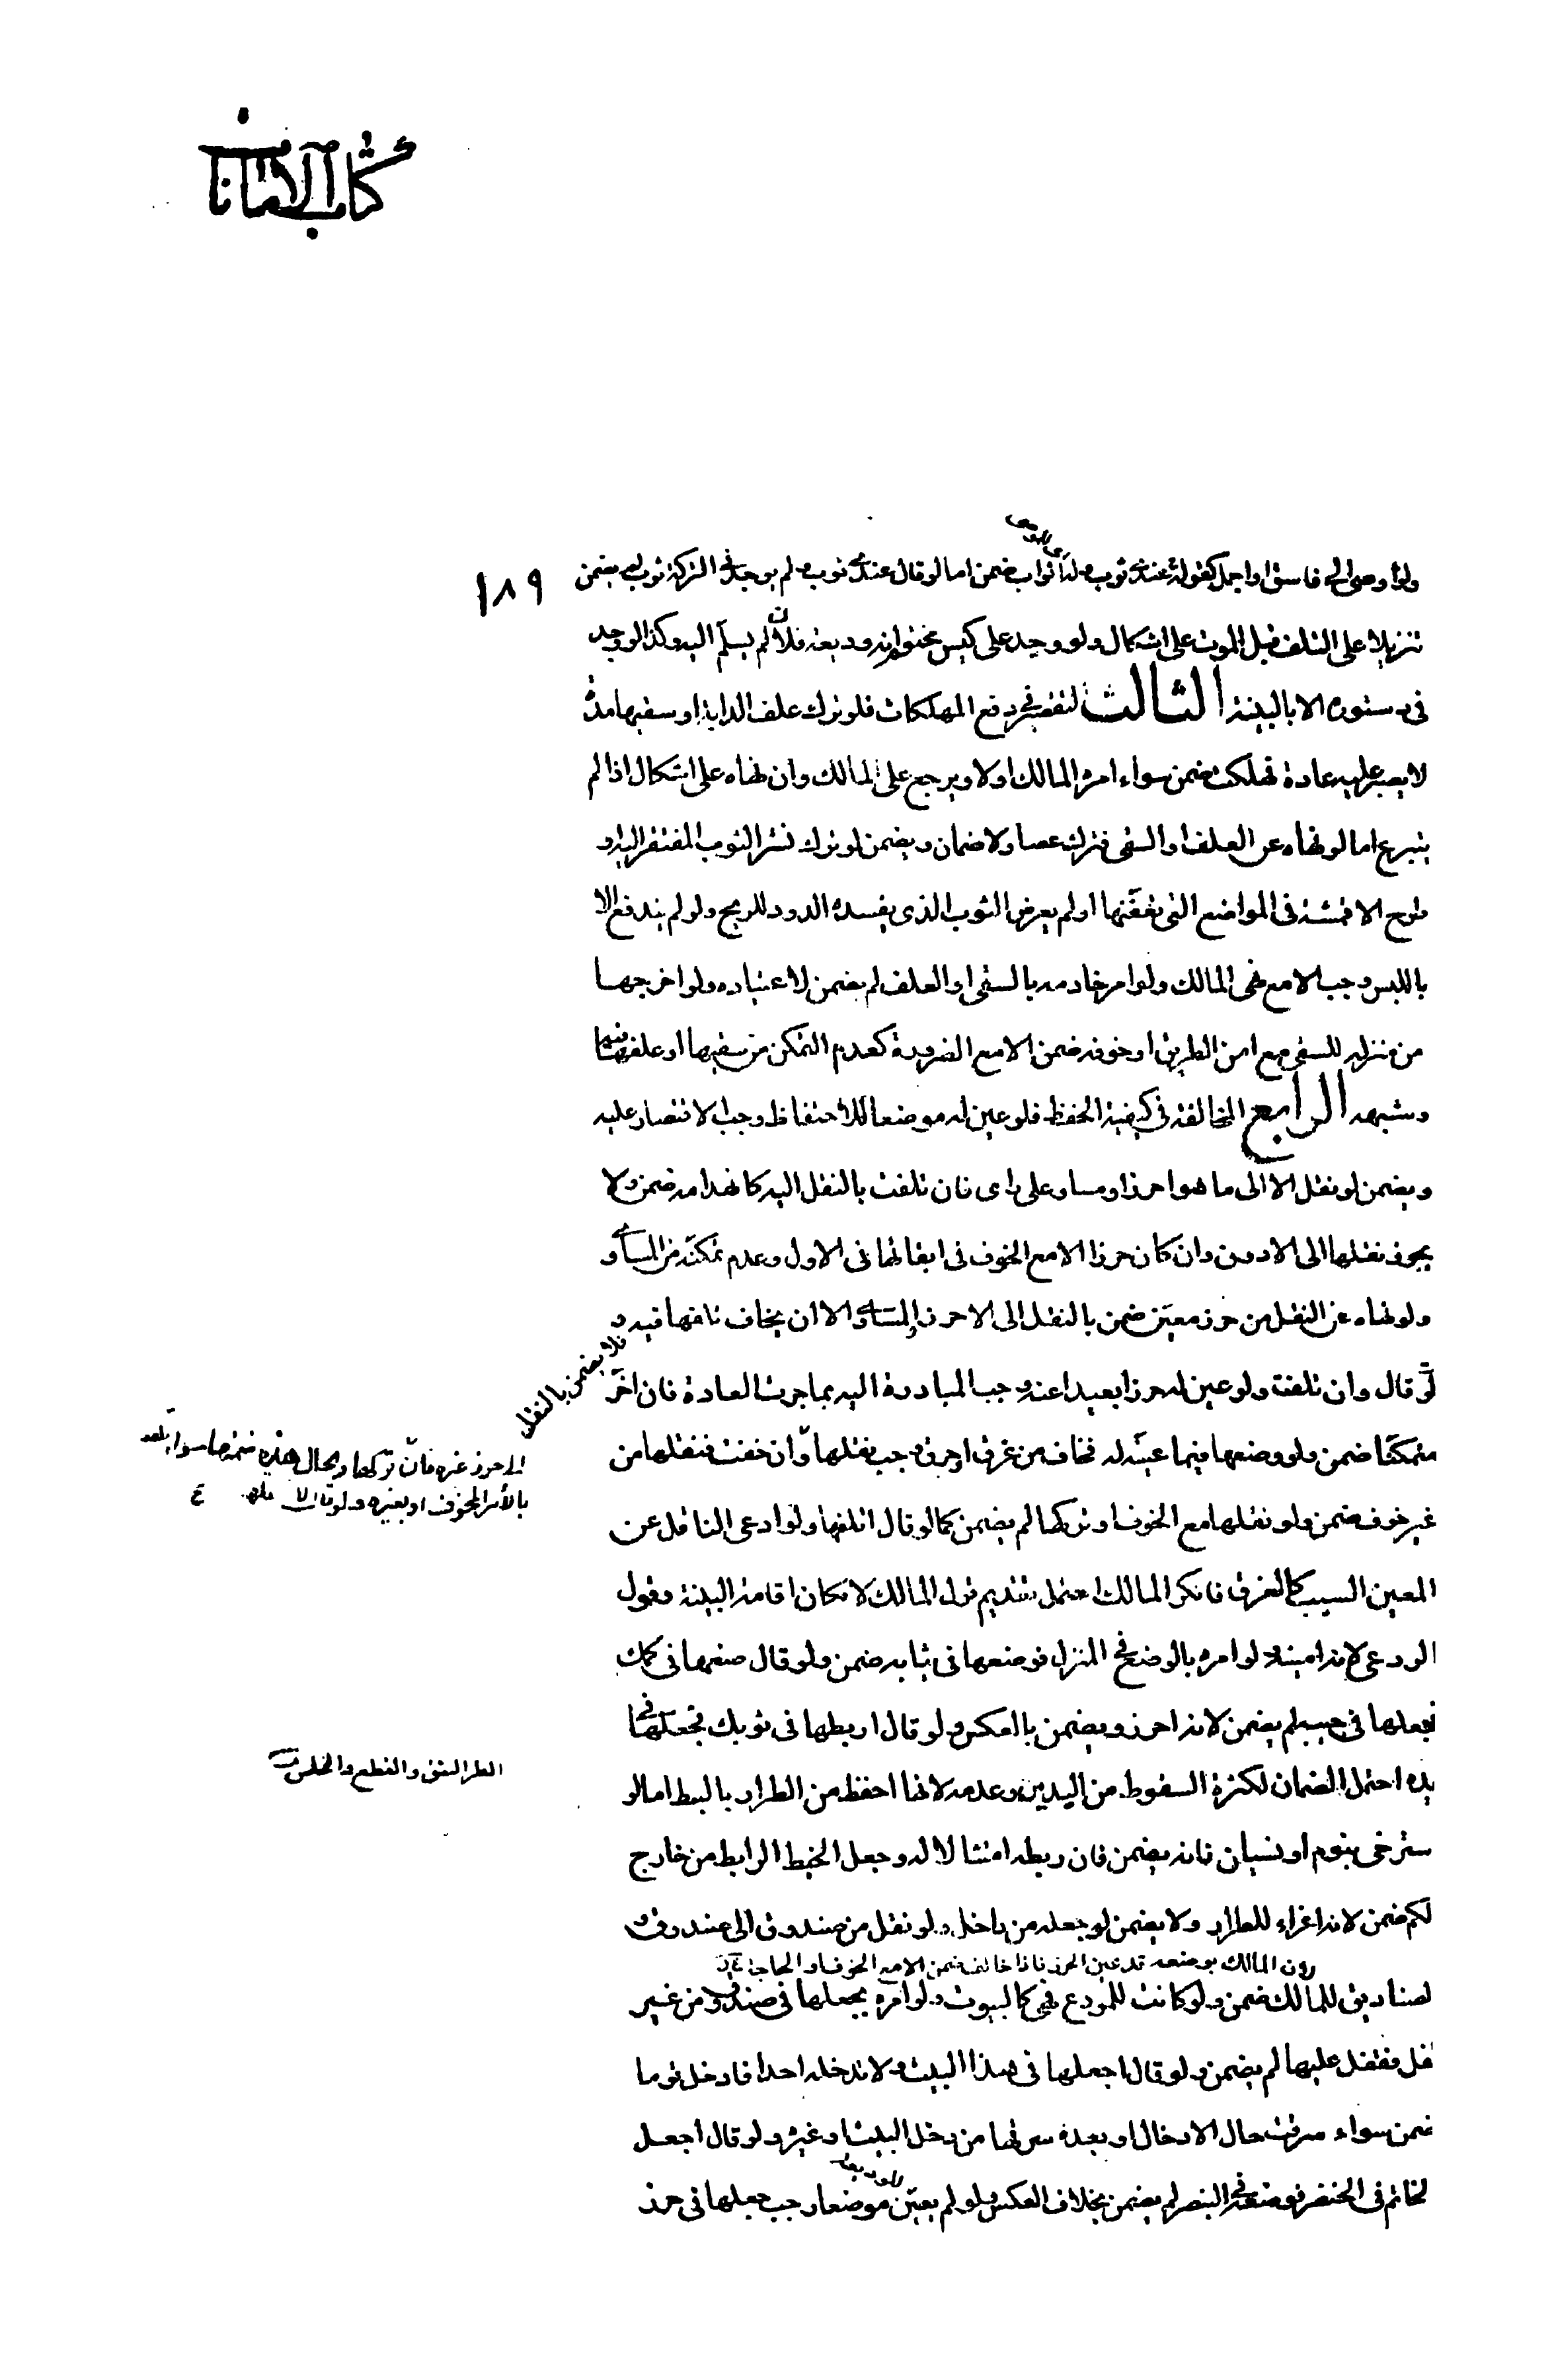 كتاب الامانات
١٨٩
ولو اوصى الى فاسق او اجمل كقوله عندي ثوب وله اثواب ضمن اما لو قال عندي ثوب ولم يوجد في التركة ثوب لم يضمن
تنزيلا على التلف قبل الموت على اشكال ولو وجد على كيس مختوم انه وديعة فلان لم يسلم اليه وكذا لو وجد
في دستوره الا بالبينة الثالث التقصير في دفع المهلكات فلو ترك علف الدابة او سقيها مدة
لا يصبر عليه عادة فهلكت ضمن سواء امره المالك اولا ويرجع على المالك وان نهاه على اشكال اذا لم
يتبرع اما لو نهاه عن العلف او السقى فترك عصا ولا ضمان ويضمن لو ترك نشر الثوب المفتقر اليه و
طرح الاقمشة في المواضع التى تعفنها او لم يعرض الثوب الذى يفسده الدود للريح ولو لم يندفع الا
باللبس وجب الا مع نهى المالك ولو امر خادمه بالسقى او العلف لم يضمن لاعتياده ولو اخرجها
من منزله للسقى مع امن الطريق او خوفه ضمن الا مع الضرورة كعدم التمكن من سقيها او علفها فيه
وشبهه الرابع المخالفة في كيفية الحفظ فلو عين له موضعا للاحتفاظ وجب الاقتصار عليه
ويضمن لو نقل الا الى ما هو احرز او مساو على راى فان تلفت بالنقل اليه كانهدامه ضمن ولا
يجوز نقلها الى الادون وان كان حرزا الا مع الخوف في ابقائها في الاول وعدم تمكنه من المساوي
ولو نهاه عن النقل من حرز معين ضمن بالنقل الى الاحرز والمساوي الا ان يخاف تلفها فيه
فلا يضمن بالنقل
لو قال وان تلفت ولو عين له حرزا بعيدا عنه وجب المبادرة اليه بما جرت العادة فان اخر
متمكنا ضمن ولو وضعها فيما عينه له فخاف من غرق او حرق وجب نقلها وان خفت فنقلها من
الى حرز غيره فان تركها والحال هذه ضمنها سواء تلفت
بالأمر المخوف او بغيره ولو قال لا
غير خوف ضمن ولو نقلها مع الخوف او تركها لم يضمن كما لو قال اتلفها ولو ادعى الناقل عن
المعين السبب كالغرق فانكر المالك احتمل تقديم قول المالك لامكان اقامة البينة وقول
الودعى لانه امينه ولو امره بالوضع في المنزل فوضعها في ثيابه ضمن ولو قال ضعها في كمك
فجعلها في جيبه لم يضمن لانه احرز ويضمن بالعكس ولو قال اربطها في ثوبك فجعلها في
الطر الشق والقطع والخلس
يده احتمل الضمان لكثرة السقوط من اليدين وعدمه لانها احفظ من الطرار بالبط اما لو
سترخى بنوم او نسيان فانه يضمن فان ربطه امتثالا له وجعل الخيط الرابط من خارج
لكم ضمن لانه اغراء للطرار ولا يضمن لو جعله من داخل ولو نقل من صندوق الى صندوق و
لصناديق للمالك ضمن ولو كانت للمودع فهى كالبيوت ولو امره بجعلها في صندوق من غير
قفل فقفل عليها لم يضمن ولو قال اجعلها في هذا البيت ولا تدخله احدا فادخل قوما
ضمن سواء سرقت حال الادخال او بعده سرقها من دخل البيت او غيره ولو قال اجعل
لخاتم في الخنصر فوضعه في البنصر لم يضمن بخلاف العكس ولو لم يعين موضعا وجب جعلها في حرز